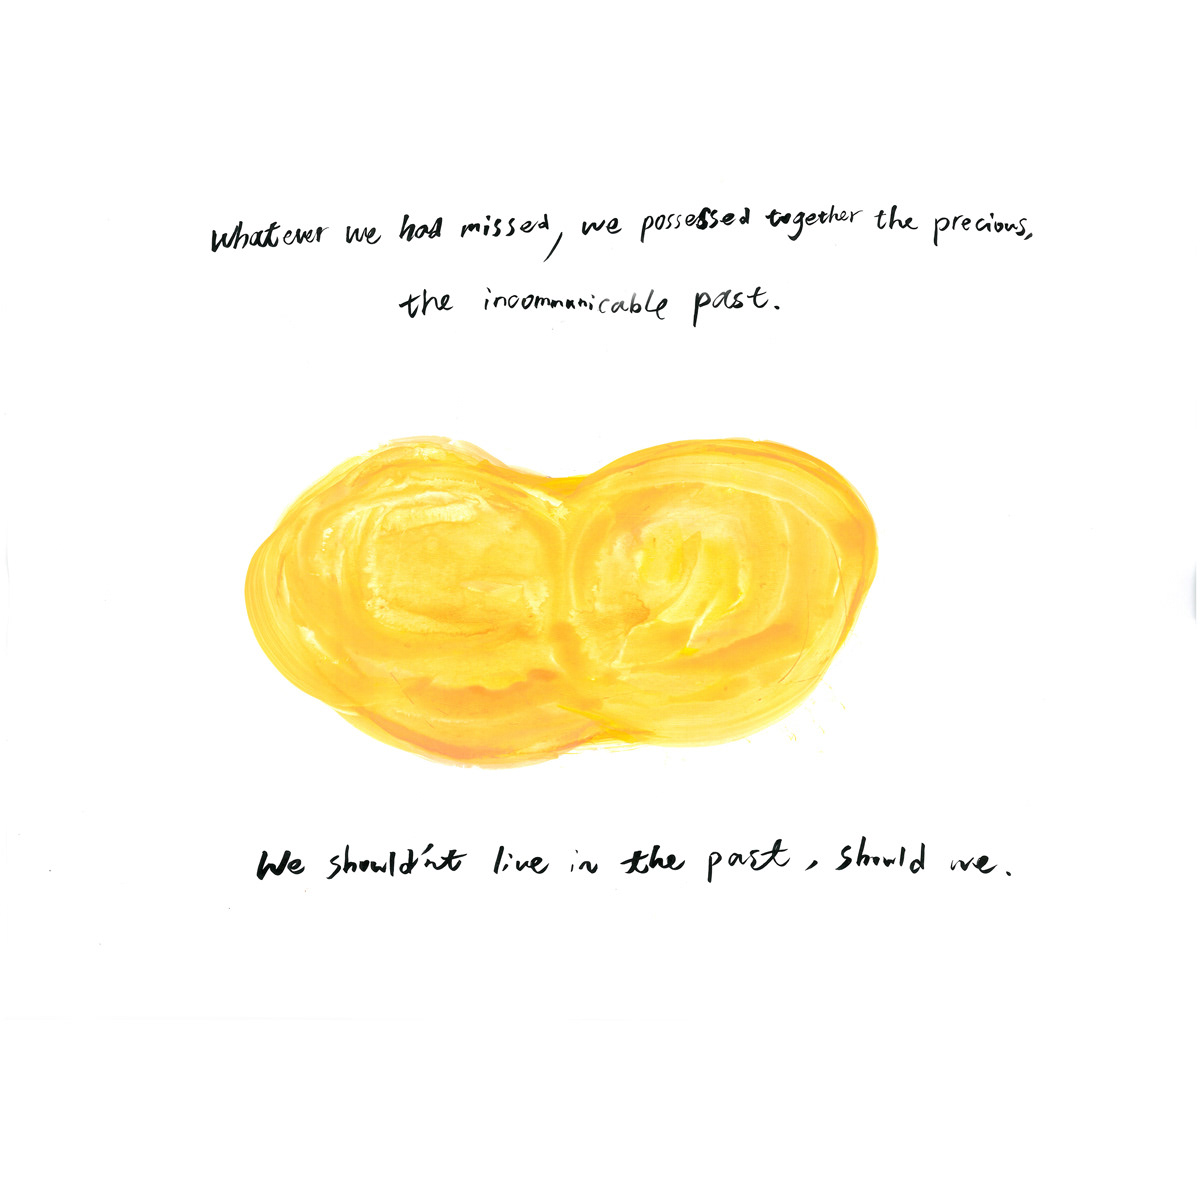 Whatever we had missed, we possessed together the precious,
the incommunicable past.
We should'nt live in the past, should we.